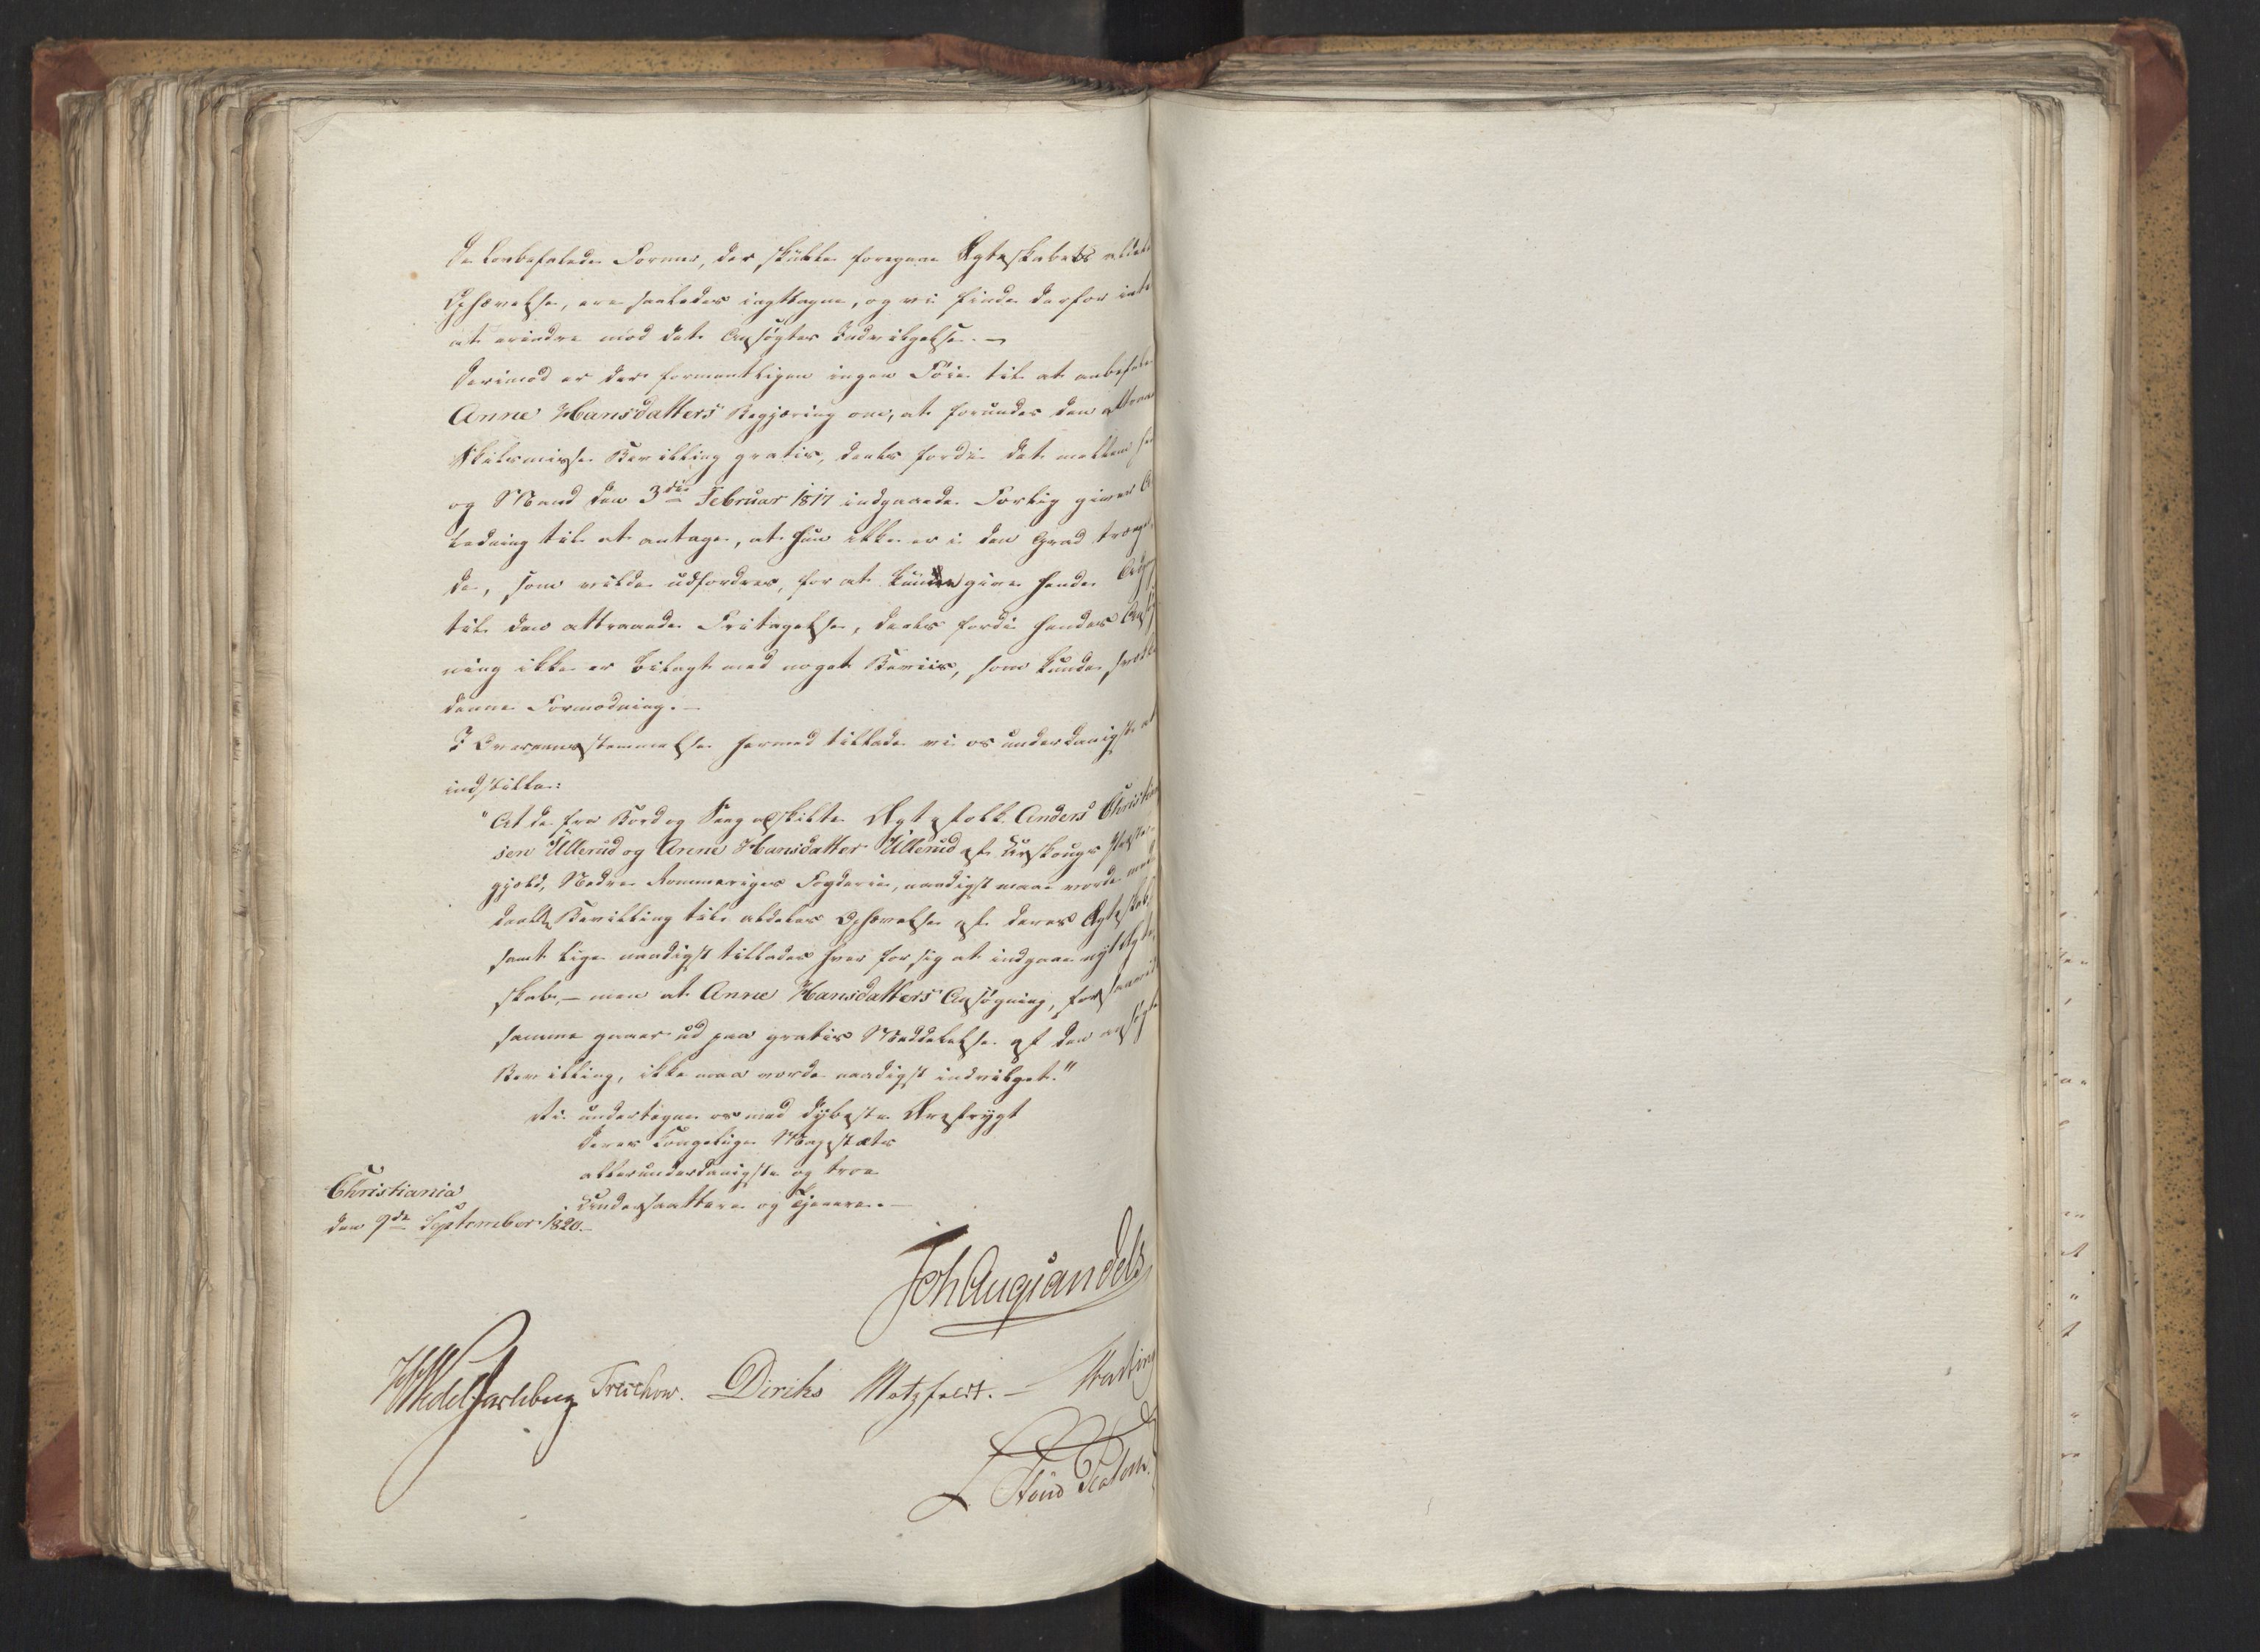 de lovbefalede Former, der skulle foregaae Ægteskabets aldeles
Ophævelse, ere saaledes iagttagne, og vi finde derfor intet
at erindre mod det Ansøgtes Indvilgelse. –
Derimod er der formentligen ingen Føie til at anbefale
Anne Hansdatters Begjæring om, at forundes den attraaede
Skilsmisse Bevilling gratis, deels fordi det mellem hende
og Mand den 3die Februar 1817 indgaaede Forlig giver An
ledning til at antage, at hun ikke er i den Grad trængen
de, som vilde udfordres, for at kunne give hende Adgang
til den attraaede Fritagelse, deels fordi hendes Ansøg
ning ikke er bilagt med noget Beviis, som kunde svække
denne Formodning. –
I Overeensstemmelse hermed tillade vi os underdanigst at
indstille:
"At de fra Bord og Seng adskilte Ægtefolk Anders Christian
sen Ullerud og Anne Hansdatter Ullerud af Urskougs Præste
gjeld, Nedre Rommeriges Fogderie, naadigst maae vorde med
deelt Bevilling til aldeles Ophævelse af deres Ægteskab,
samt lige naadigst tillades hver for sig at indgaae nyt Ægte
skab, – men at Anne Hansdatters Ansøgning, forsaavidt
samme gaaer ud paa gratis Meddelelse af den ansøgte
Bevilling, ikke maa vorde naadigst indvilget."
Vi undertegne os med dybeste Ærefrygt
Deres Kongelige Majestæts
allerunderdanigste og troe
Undersaattere og Tjenere. –
Christiania
den 9de September 1820. –
Joh Aug Sandels
HWedel Jarlsberg Treschow. Diriks Motzfeldt. –